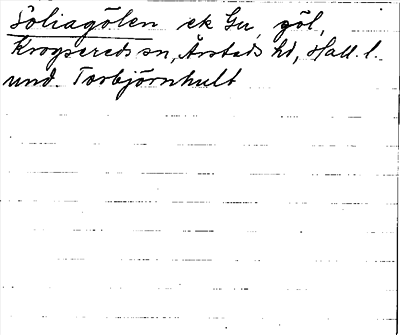 Soliagölen ek Gu, göl,
Krogsereds sn, Årstads hd, Hall. l.
und. Torbjörnhult